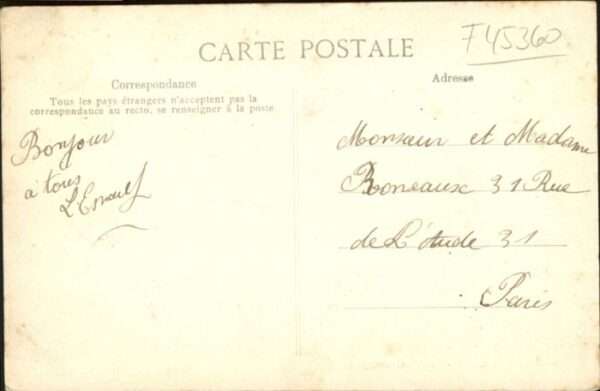 CARTE POSTALE
F45360
Correspondance
Adresse
Tous les pays étrangers n'acceptent pas la
correspondance au recto, se renseigner à la poste
Bonjour
a tous
Monsieur et Madame
31 Rue
de 31
Paris